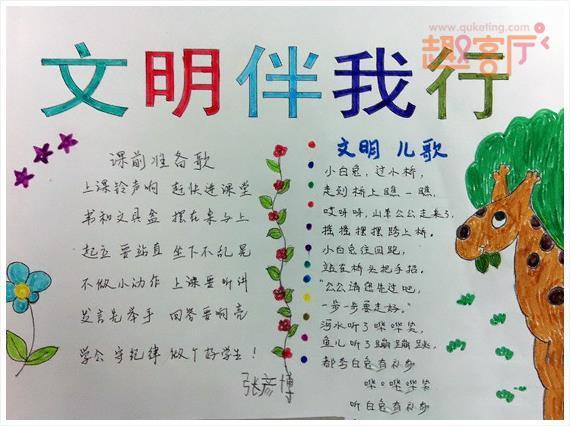 www.quketing.com
趣客厅
文明伴我行
课前准备歌
上课铃声响 赶快进课堂
书和文具盒 摆在桌与上
起立要站直 坐下不乱晃
不做小动作 上课要听讲
发言先举手 回答要响亮
学会守纪律 做个好学生！
张彦博
文明 儿歌
小白兔，过小桥，
走到桥上瞧一瞧，
哎呀呀，山羊公公走来了，
摇摇摆摆跨上桥。
小白兔往回跑，
站在桥头把手招。
“公公请您先过吧，
一步一步要走好。”
河水听了哗哗笑，
鱼儿听了蹦蹦跳，
都夸白兔有礼貌
哗哗哗笑
听白兔有礼貌